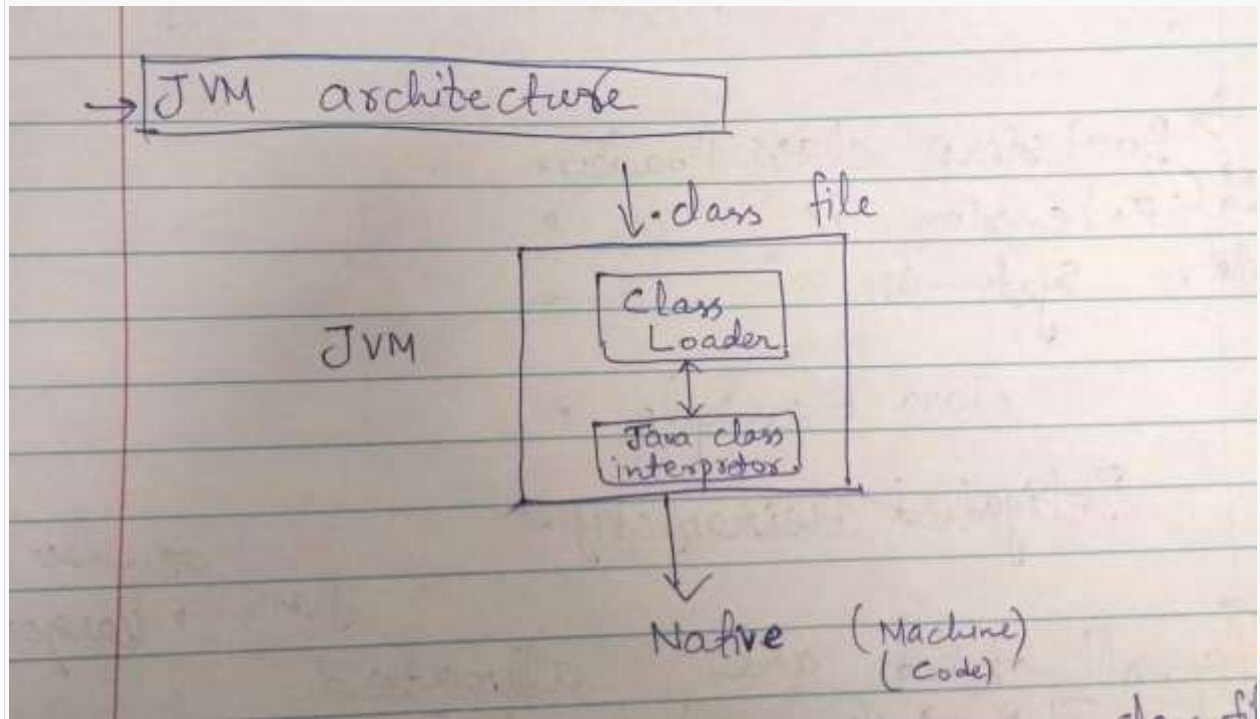 JVM architecture
.class file
JVM
Class
Loader
Java class
interpretor
Native (Machine)
(Code)